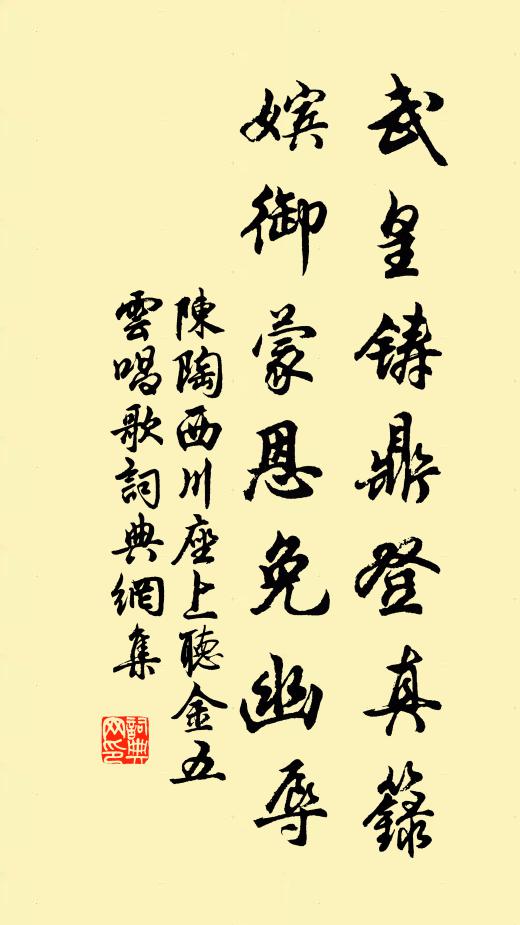 武皇鑄鼎登真籙
嬪御蒙恩免幽辱
陳陶西川座上聽金五
雲唱歌詞典網集
詞典網印